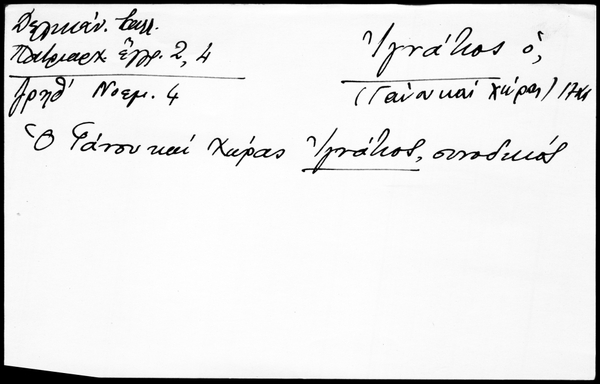 Δελικάν. Καλλ.
Πατριαρχ. ἔγγρ. 2, 4
͵αψπθʹ Νοεμ. 4
Ἰγνάτιος ὁ,
(Γάνου καὶ Χώρας)
Ὁ Γάνου καὶ Χώρας Ἰγνάτιος, συνοδικός